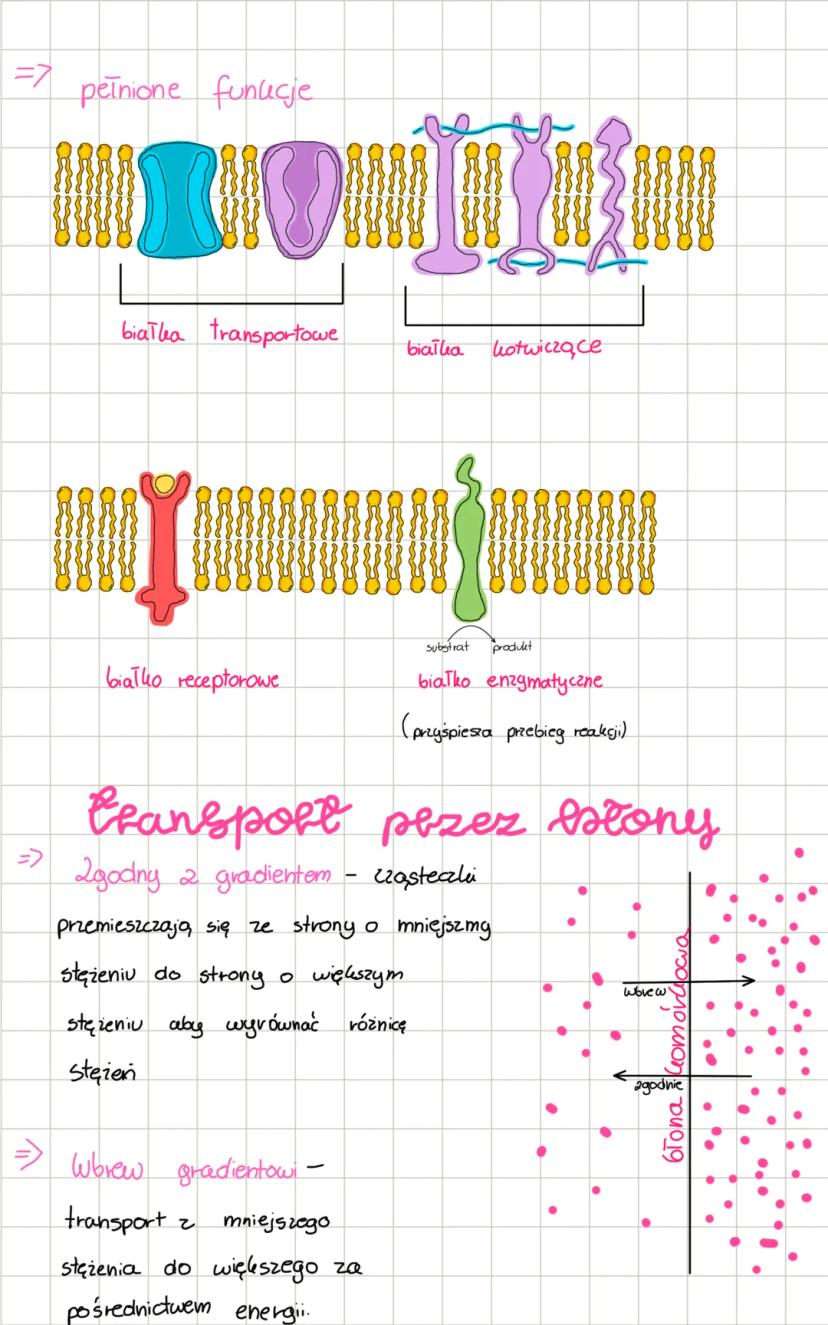 => pełnione funkcje
białka transportowe
białka kotwiczące
substrat produkt
białko receptorowe
białko enzymatyczne
(przyśpiesza przebieg reakcji)
transport przez błony
=> zgodny z gradientem – cząsteczki
przemieszczają się ze strony o mniejszmy
stężeniu do strony o większym
stężeniu aby wyrównać różnicę
stężeń
wbrew
zgodnie
błona komórkowa
=> Wbrew gradientowi –
transport z mniejszego
stężenia do większego za
pośrednictwem energii.